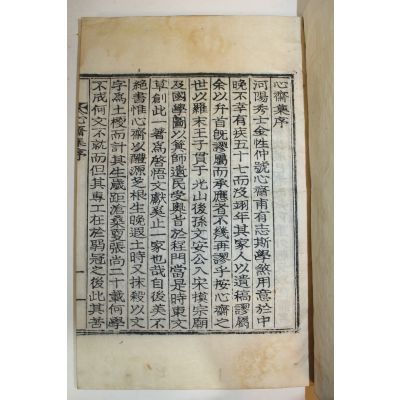 心齋集序
河陽秀士金性仲號心齋甫有志斯學煞用意於中
晚不幸有疾五十七而沒翊年其家人以遺稿謬屬
余以弁首旣謬屬而承應者不幾再謬乎按心齋之
世以羅末王子貫于光山後孫文安公入宋模宗廟
及國學圖以師遺民受奧旨於程門當是時東文
草創此一著爲啓悟文獻奚止一家也哉自後美不
絶書惟心齋以醴源芝根生晚遐土時又抹殺以文
字爲土梗而計其生歲距滄桑更張尚二十載何學
不成何文不就而但其專工在於弱冠之後此其苦
心齋集序 一